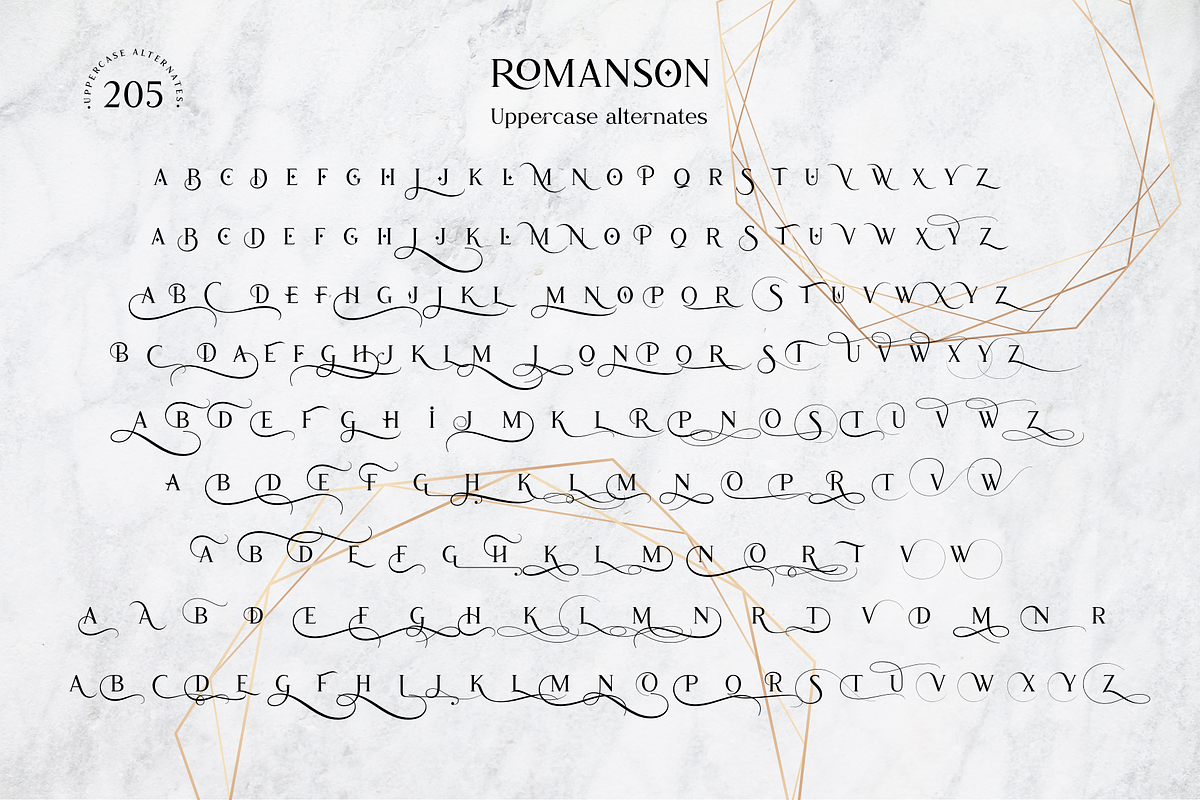 UPPERCASE ALTERNATES
205
ROMANSON
Uppercase alternates
A B C D E F G H I J K L M N O P Q R S T U V W X Y Z
A B C D E F G H I J K L M N O P Q R S T U V W X Y Z
A B C D E F H G J J K L M N O P Q R S T U V W X Y Z
B C D A E F G H J K L M J O N P Q R S T U V W X Y Z
A B D E F G H I J M K L R P N O S T U V W Z
A B D E F G H K L M N O P R T V W
A B D E F G H K L M N O R T V W
A A B D E F G H K L M N R T V D M N R
A B C D E G F H I J K L M N O P Q R S T U V W X Y Z